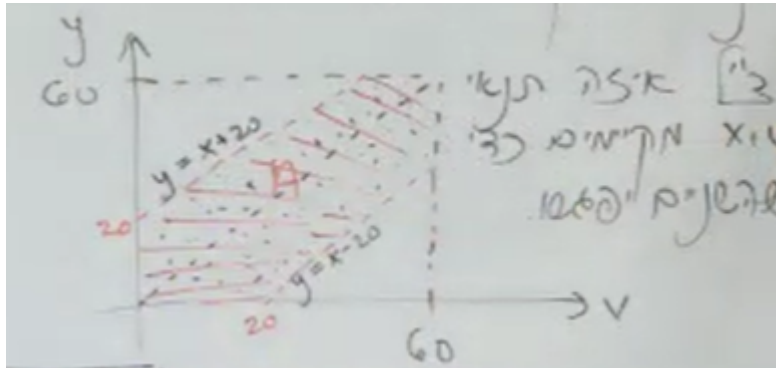 y
60
y = x+20
20
B
y = x-20
20
60
איזה תנאי
x,y מקיימים כדי
שהשניים יפגשו.